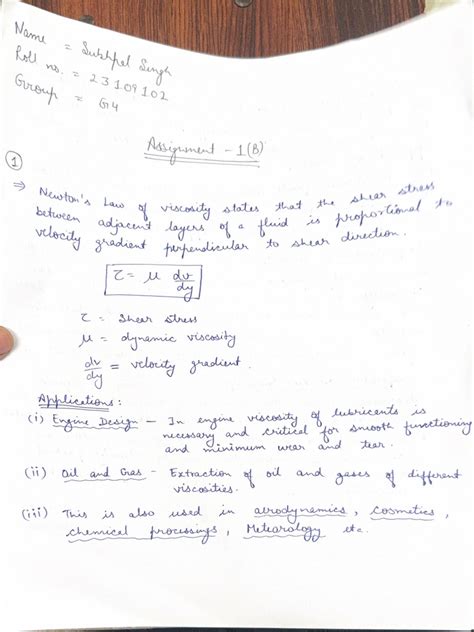 Name = Sukhpal Singh
Roll no. = 23109102
Group = G4
Assignment - 1(B)
1
⇒ Newton's Law of viscosity states that the shear stress
between adjacent layers of a fluid is proportional to
velocity gradient perpendicular to shear direction.
τ = μ dv/dy
τ = Shear stress
μ = dynamic viscosity
dv/dy = velocity gradient.
Applications:
(i) Engine Design - In engine viscosity of lubricants is
necessary and critical for smooth functioning
and minimum wear and tear.
(ii) Oil and Gas - Extraction of oil and gases of different
viscosities.
(iii) This is also used in aerodynamics, cosmetics,
chemical processings, Meteorology etc.